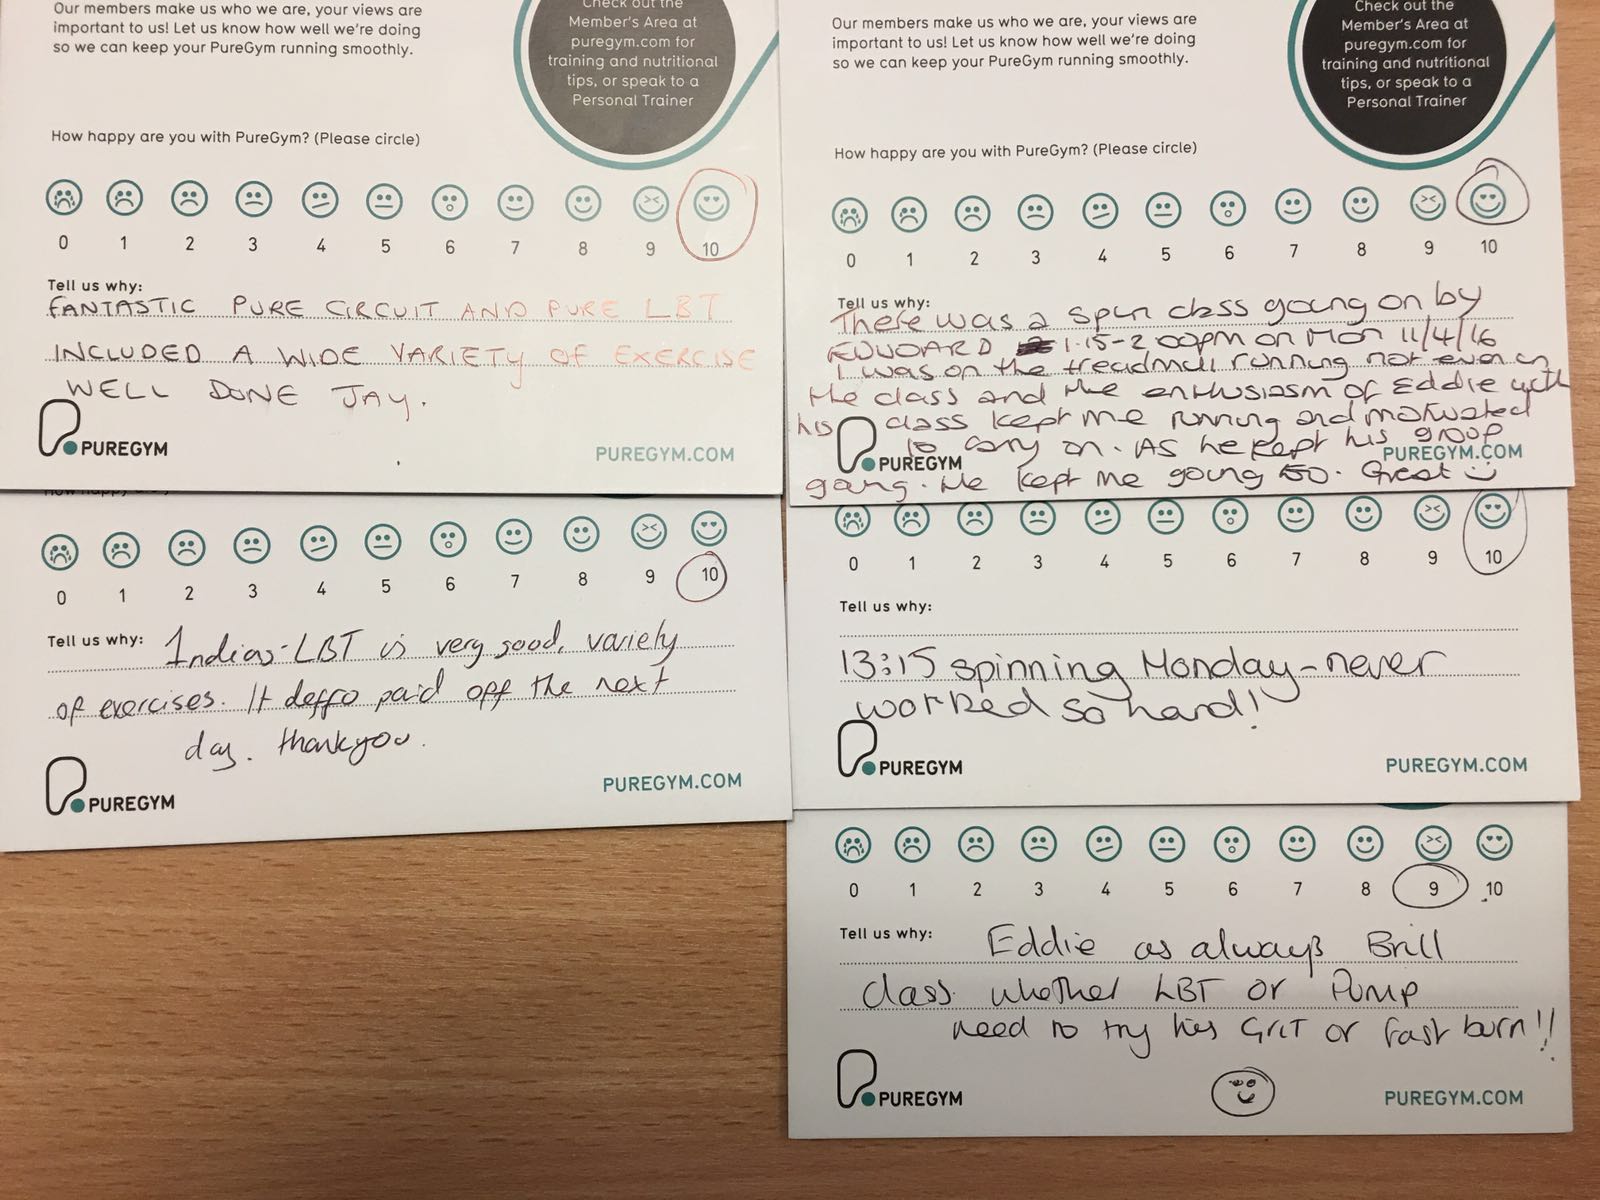 Our members make us who we are, your views are
important to us! Let us know how well we're doing
so we can keep your PureGym running smoothly.
Check out the
Member's Area at
puregym.com for
training and nutritional
tips, or speak to a
Personal Trainer
How happy are you with PureGym? (Please circle)
0 1 2 3 4 5 6 7 8 9 10
Tell us why:
FANTASTIC PURE CIRCUIT AND PURE LBT
INCLUDED A WIDE VARIETY OF EXERCISE
WELL DONE JAY.
PUREGYM
PUREGYM.COM
0 1 2 3 4 5 6 7 8 9 10
Tell us why: Indias-LBT is very good, variety
of exercises. It deffo paid off the next
day. thankyou.
PUREGYM
PUREGYM.COM
Our members make us who we are, your views are
important to us! Let us know how well we're doing
so we can keep your PureGym running smoothly.
Check out the
Member's Area at
puregym.com for
training and nutritional
tips, or speak to a
Personal Trainer
How happy are you with PureGym? (Please circle)
0 1 2 3 4 5 6 7 8 9 10
Tell us why:
There was a spin class going on by
EDUOARD 1.15-2.00pm on Mon 11/4/16
I was on the treadmill running not even in
the class and the enthusiasm of Eddie with
his class kept me running and motivated
to carry on. As he kept his group
going. He kept me going too. Great
PUREGYM
PUREGYM.COM
0 1 2 3 4 5 6 7 8 9 10
Tell us why:
13:15 spinning Monday - never
worked so hard!
PUREGYM
PUREGYM.COM
0 1 2 3 4 5 6 7 8 9 10
Tell us why: Eddie as always Brill
class whether LBT or Pump
need to try his GRIT or fast burn!!
PUREGYM
PUREGYM.COM